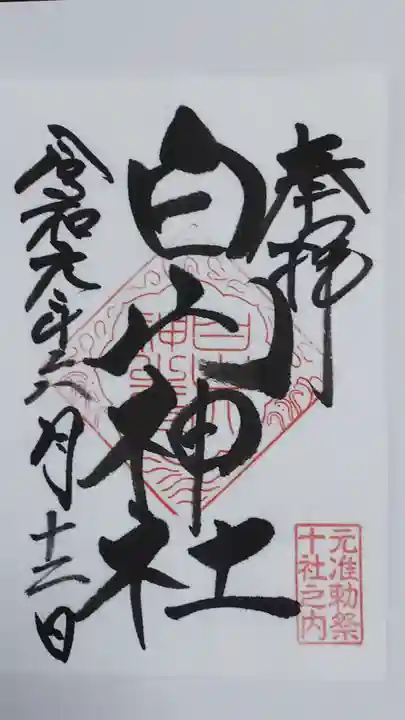 奉拝
白山神社
令和元年六月十二日
元准勅祭
十社之内